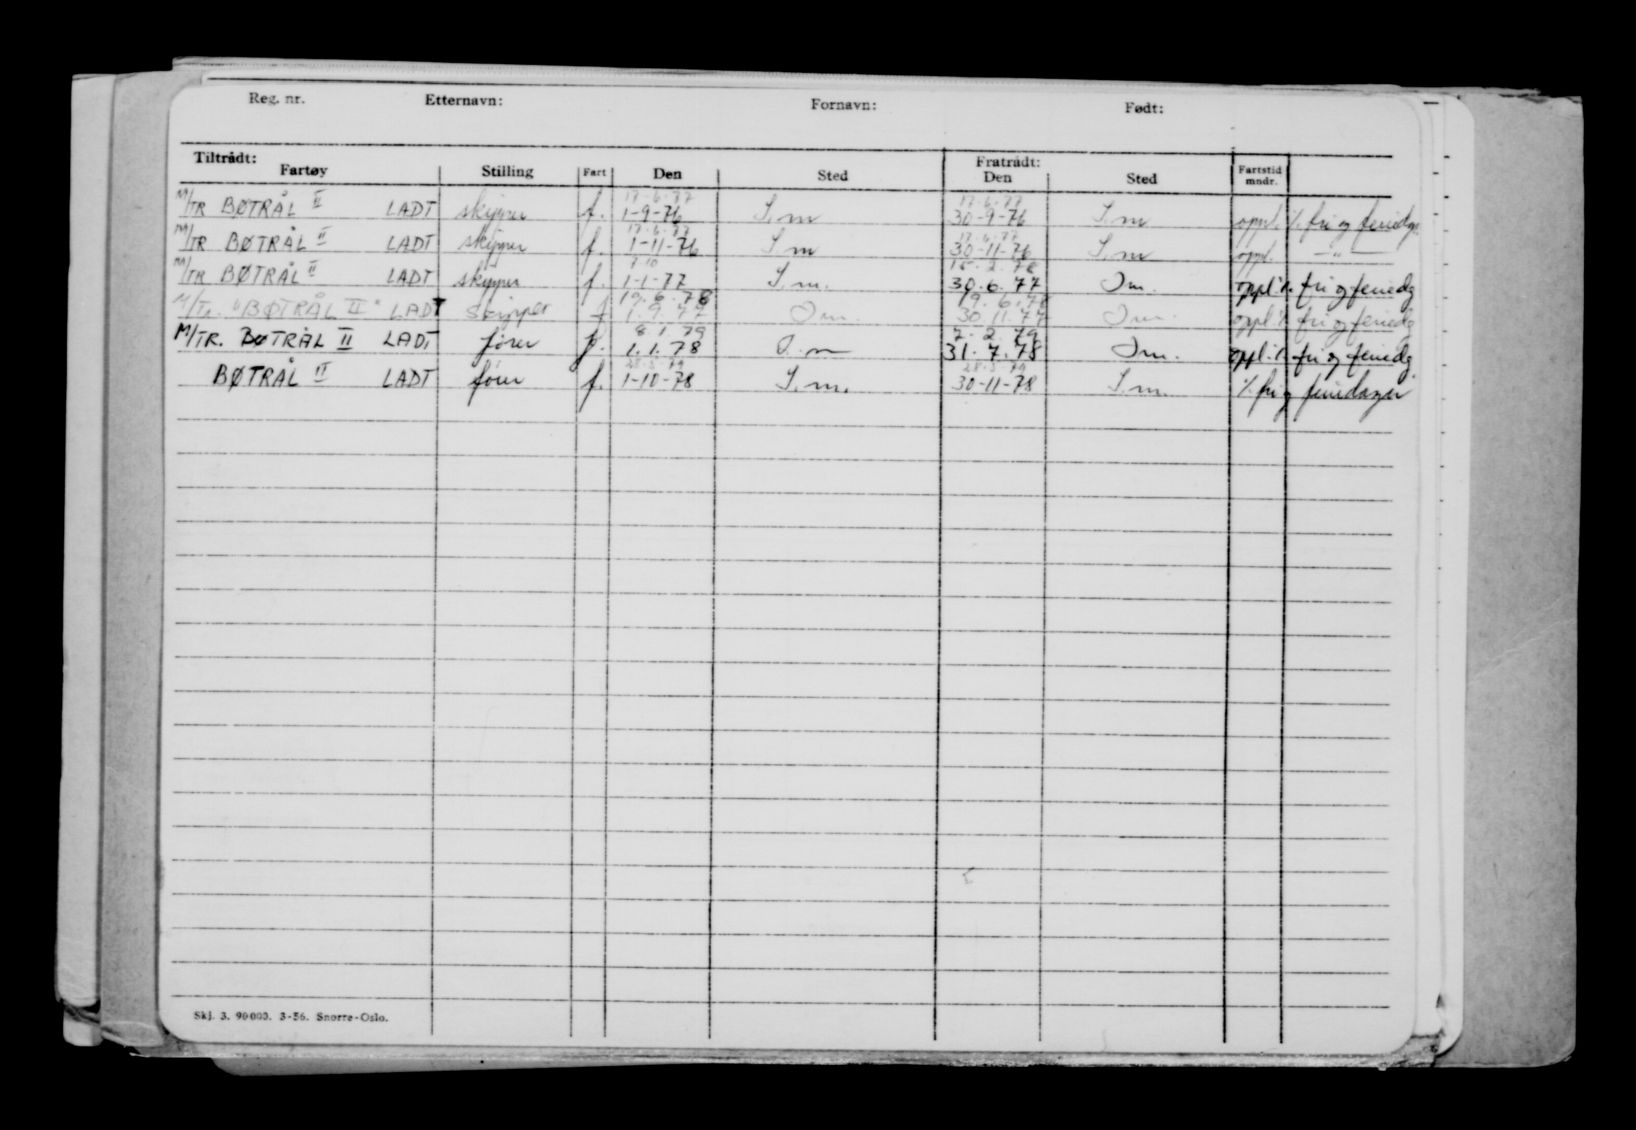 Reg. nr. Etternavn: Fornavn: Født:
Tiltrådt: Fratrådt:
Fartøy Stilling Fart Den Sted Den Sted Fartstid mndr.
17.6.77 17.6.77
M/TR BØTRÅL II LADT skipper f. 1-9-76 S.m 30-9-76 S.m oppl. % fri og feriedg.
17.6.77 17.6.77
M/TR BØTRÅL II LADT skipper f. 1-11-76 S m 30-11-76 S.m oppl. -"-
15.2.78
M/TR BØTRÅL II LADT skipper f. 1-1-77 S.m. 30.6.77 Sm. oppl. % fri og feriedg
19.6.78 19.6.78
M/Tr. "BØTRÅL II" LADT Skipper f 1.9.77 Sm. 30.11.77 Sm. oppl % fri og feriedg
8.1.79 7.2.79
M/TR. BØTRÅL II LADT fører f. 1.1.78 S.m 31.7.78 Sm. oppl. % fri og feriedg.
28.5.79 28.5.79
BØTRÅL II LADT fører f. 1-10-78 S.m. 30-11-78 S.m. % fri og feriedager
Skj. 3. 90000. 3-56. Snorre-Oslo.